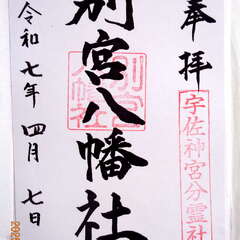 奉拝
宇佐神宮分霊社
別宮八幡社
別宮
八幡社
令和七年 四月 七日